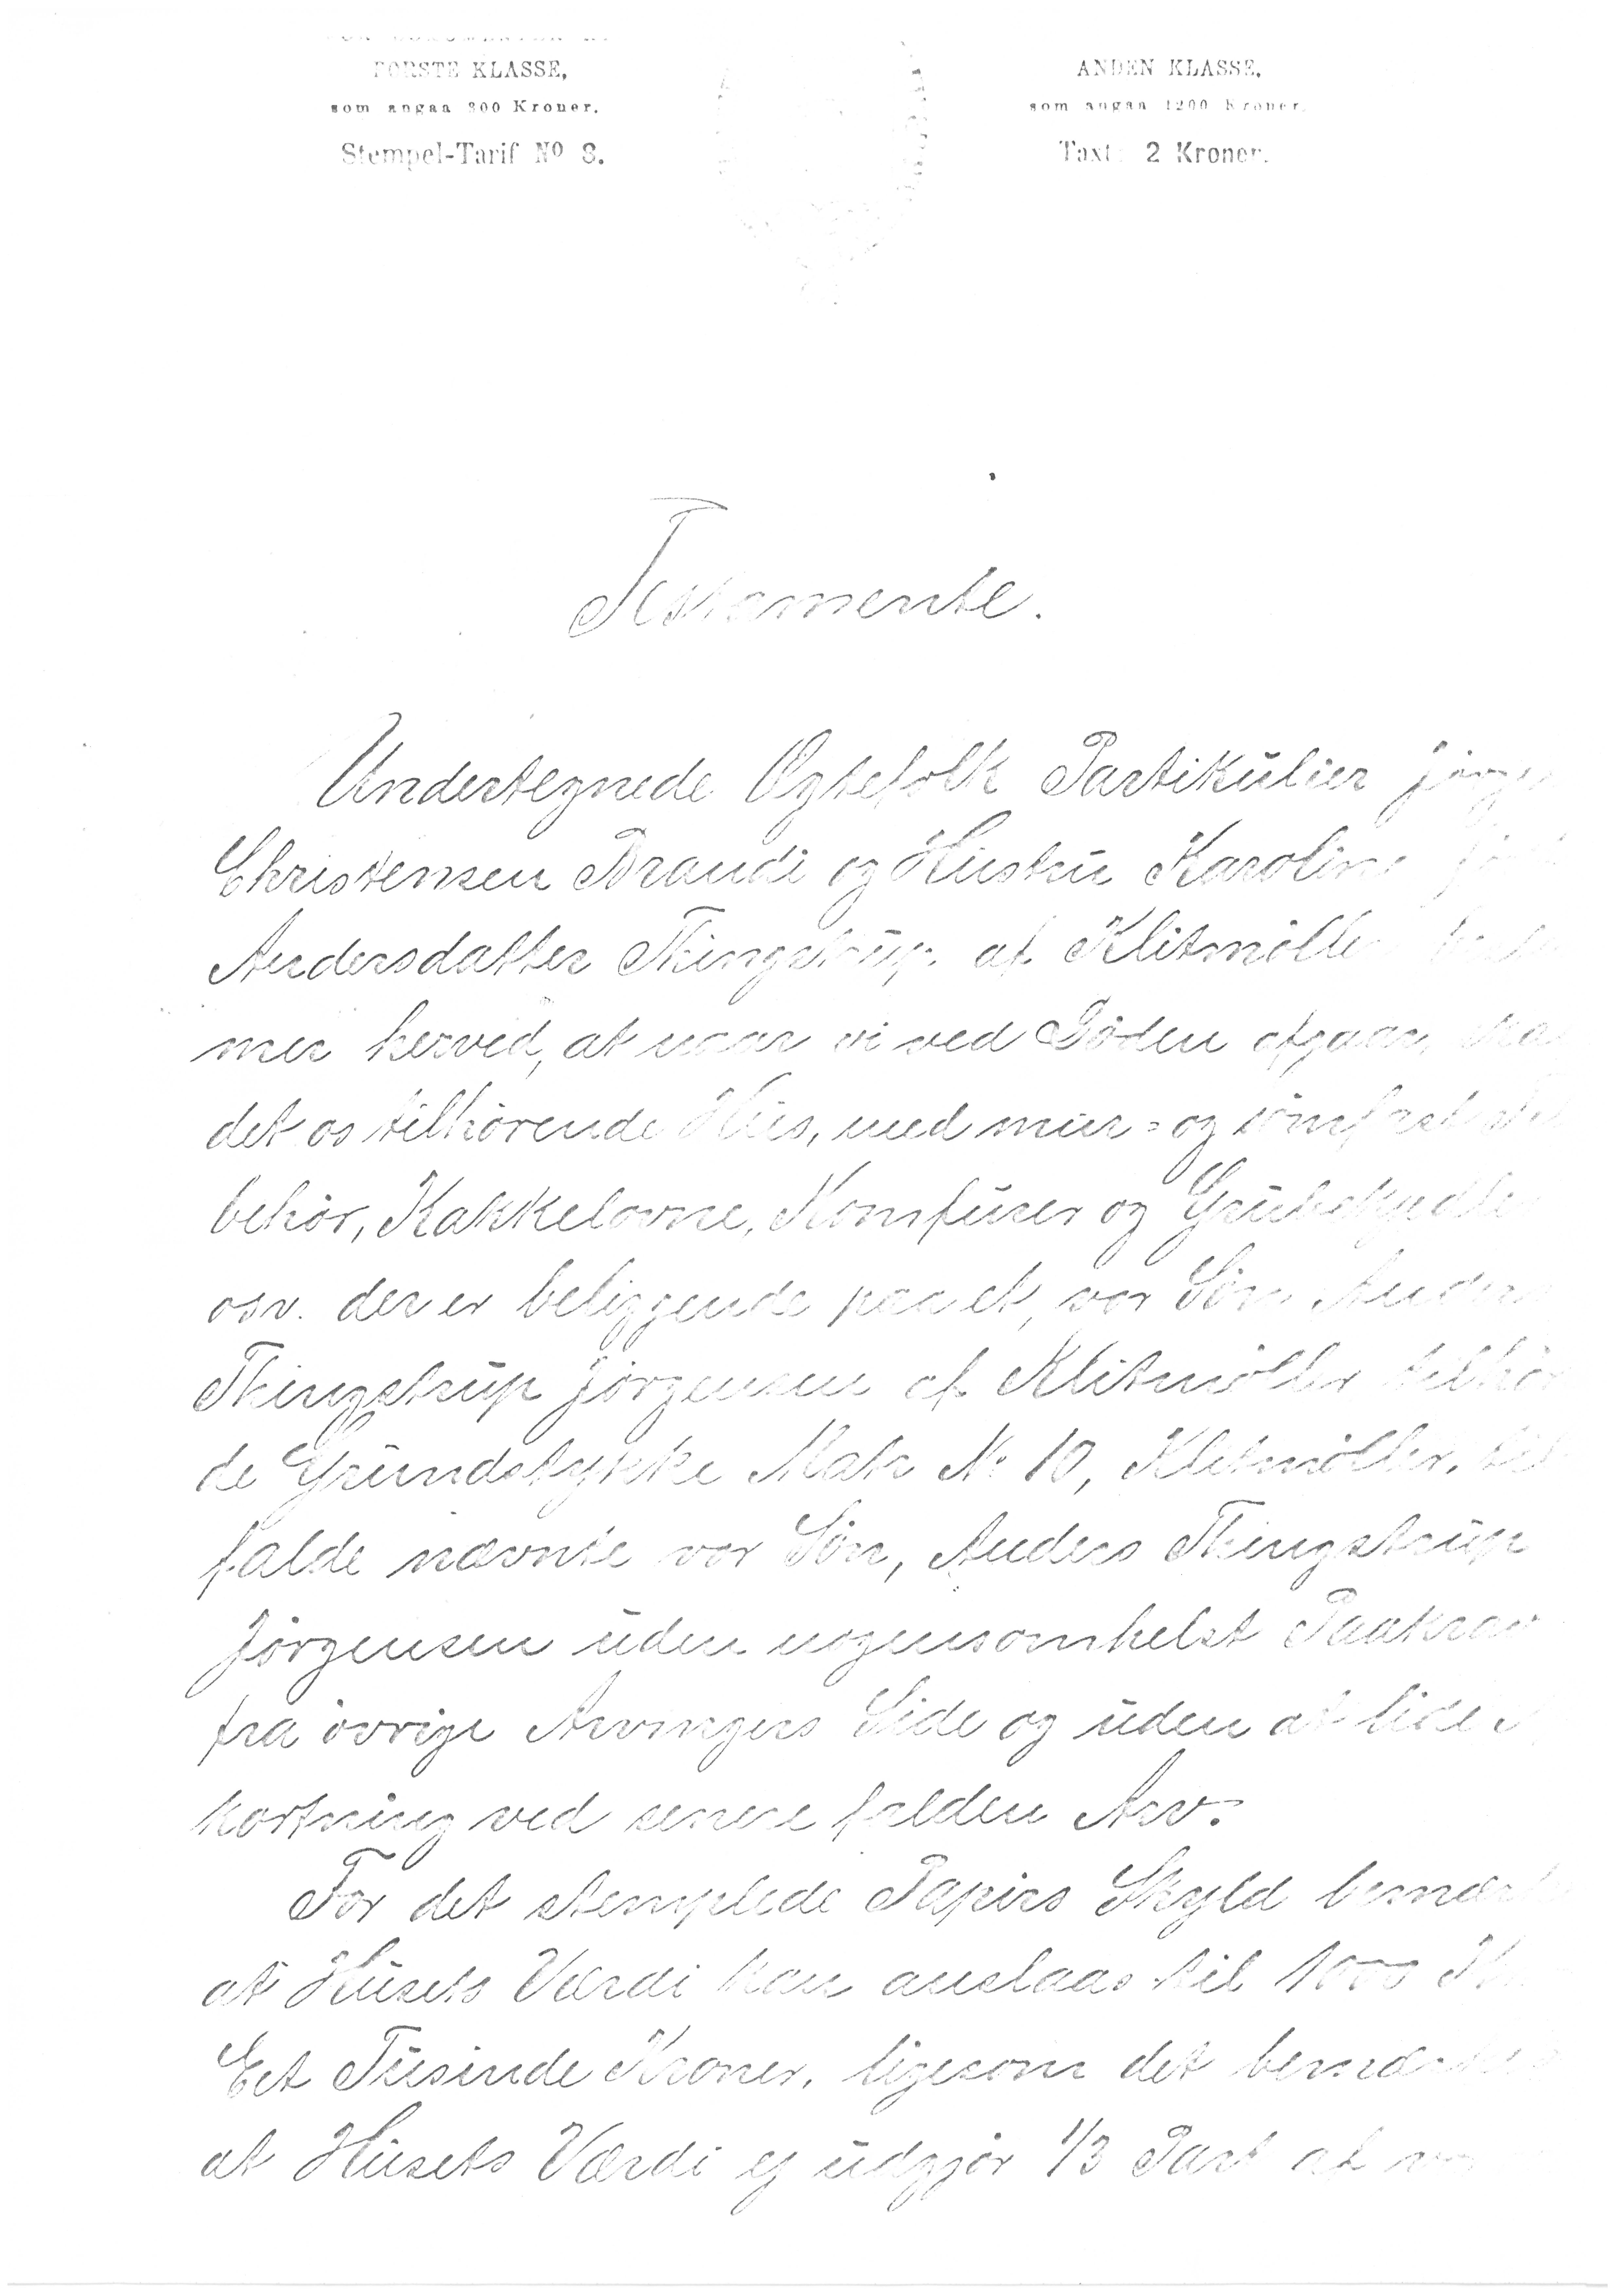 FØRSTE KLASSE,
som angaa 800 Kroner.
Stempel-Tarif No 8.
ANDEN KLASSE,
som angaa 1200 Kroner.
Taxt: 2 Kroner.
Testamente.
Undertegnede Ægtefolk Partikülier
Christensen Brandi og Hüstrü Karoline
Andersdatter Thingstrüp af Klitmøller
mer herved, at naar vi ved Døden afgaar,
det os tilhørende Hüs, med mür= og
behør, Kakkelovne, Komfürer og
osv. der er beliggende paa et, vor Søn
Thingstrüp Jørgensen af Klitmøller
de Gründstykke Matr № 10, Klitmøller,
falde nævnte vor Søn, Anders Thingstrüp
Jørgensen üden nogensomhelst Paakrav
fra øvrige Arvingers Side og üden at lide
kortning ved senere falden Arv.
For det stemplede Papirs Skyld
at Hüsets Værdi kan anslaas til 1000
Eet Tüsinde Kroner, ligesom det
at Hüsets Værdi ej üdgjør 1/3 Part af